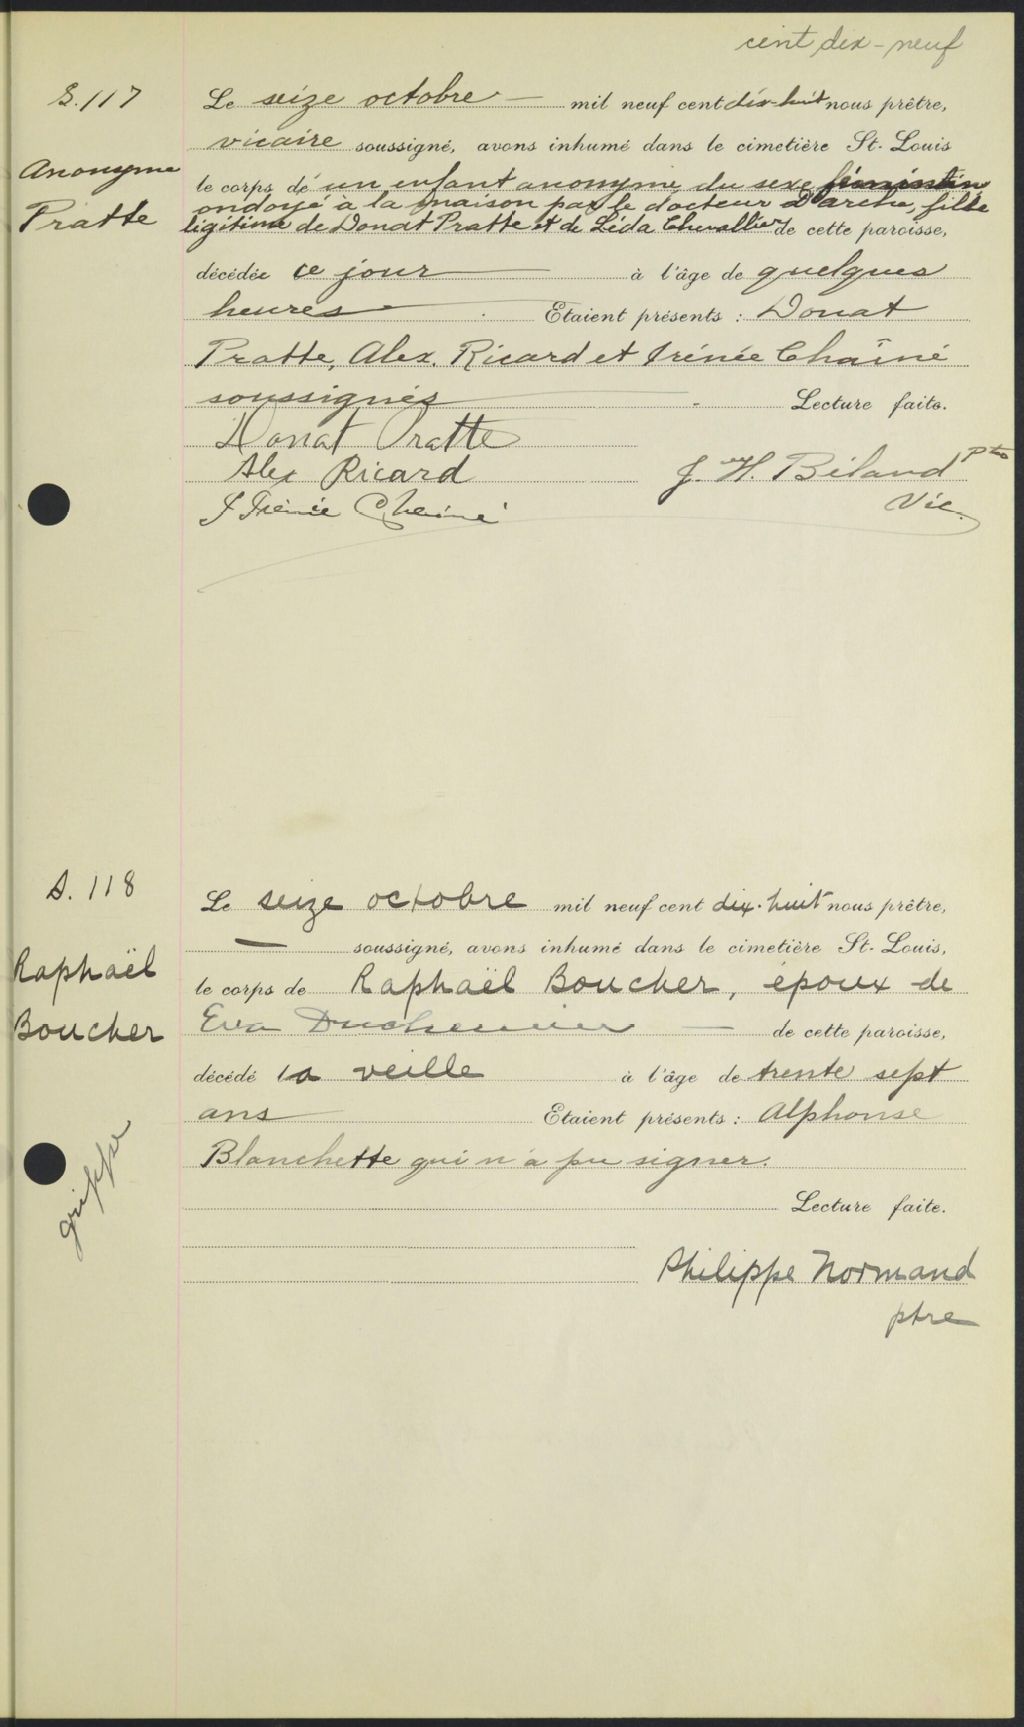 cent dix-neuf
S. 117
Anonyme
Pratte
Le seize octobre — mil neuf cent dix-huit nous prêtre,
vicaire soussigné, avons inhumé dans le cimetière St-Louis
le corps de un enfant anonyme, du sexe féminin
ondoyé à la maison par le docteur D'arche, fille
légitime de Donat Pratte et de Léda Chevallier de cette paroisse,
décédée ce jour — à l'âge de quelques
heures — Etaient présents : Donat
Pratte, Alex. Ricard et Irénée Chaîné
soussignés — Lecture faite.
Donat Pratte
Alex Ricard
J. H. Béland Ptre
J Irénée Cheiné
Vic.
S. 118
Raphaël
Boucher
grippe
Le seize octobre mil neuf cent dix-huit nous prêtre,
— soussigné, avons inhumé dans le cimetière St-Louis,
le corps de Raphaël Boucher, époux de
Eva — de cette paroisse,
décédé la veille à l'âge de trente sept
ans — Etaient présents : Alphonse
Blanchette qui n'a pu signer.
Lecture faite.
Philippe Normand
ptre